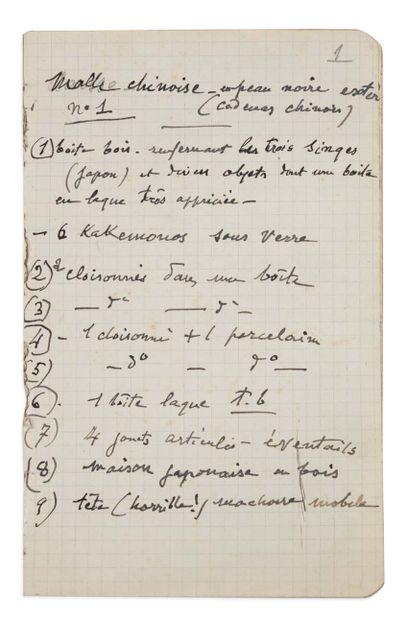 1
Malle chinoise - en peau noire extér
n° 1 (cadenas chinois)
(1) boîte bois - renfermant les trois singes
(Japon) et divers objets dont une boîte
en laque très appréciée -
- 6 Kakemonos sous verre
(2) 2 cloisonnés dans une boîte
(3) - d° - d° -
(4) - 1 cloisonné + 1 porcelaine
(5) - d° - d° -
(6) - 1 boîte laque t. b
(7) 4 jouets articulés - éventails
(8) maison japonaise en bois
9) tête (horrible!) machoire mobile